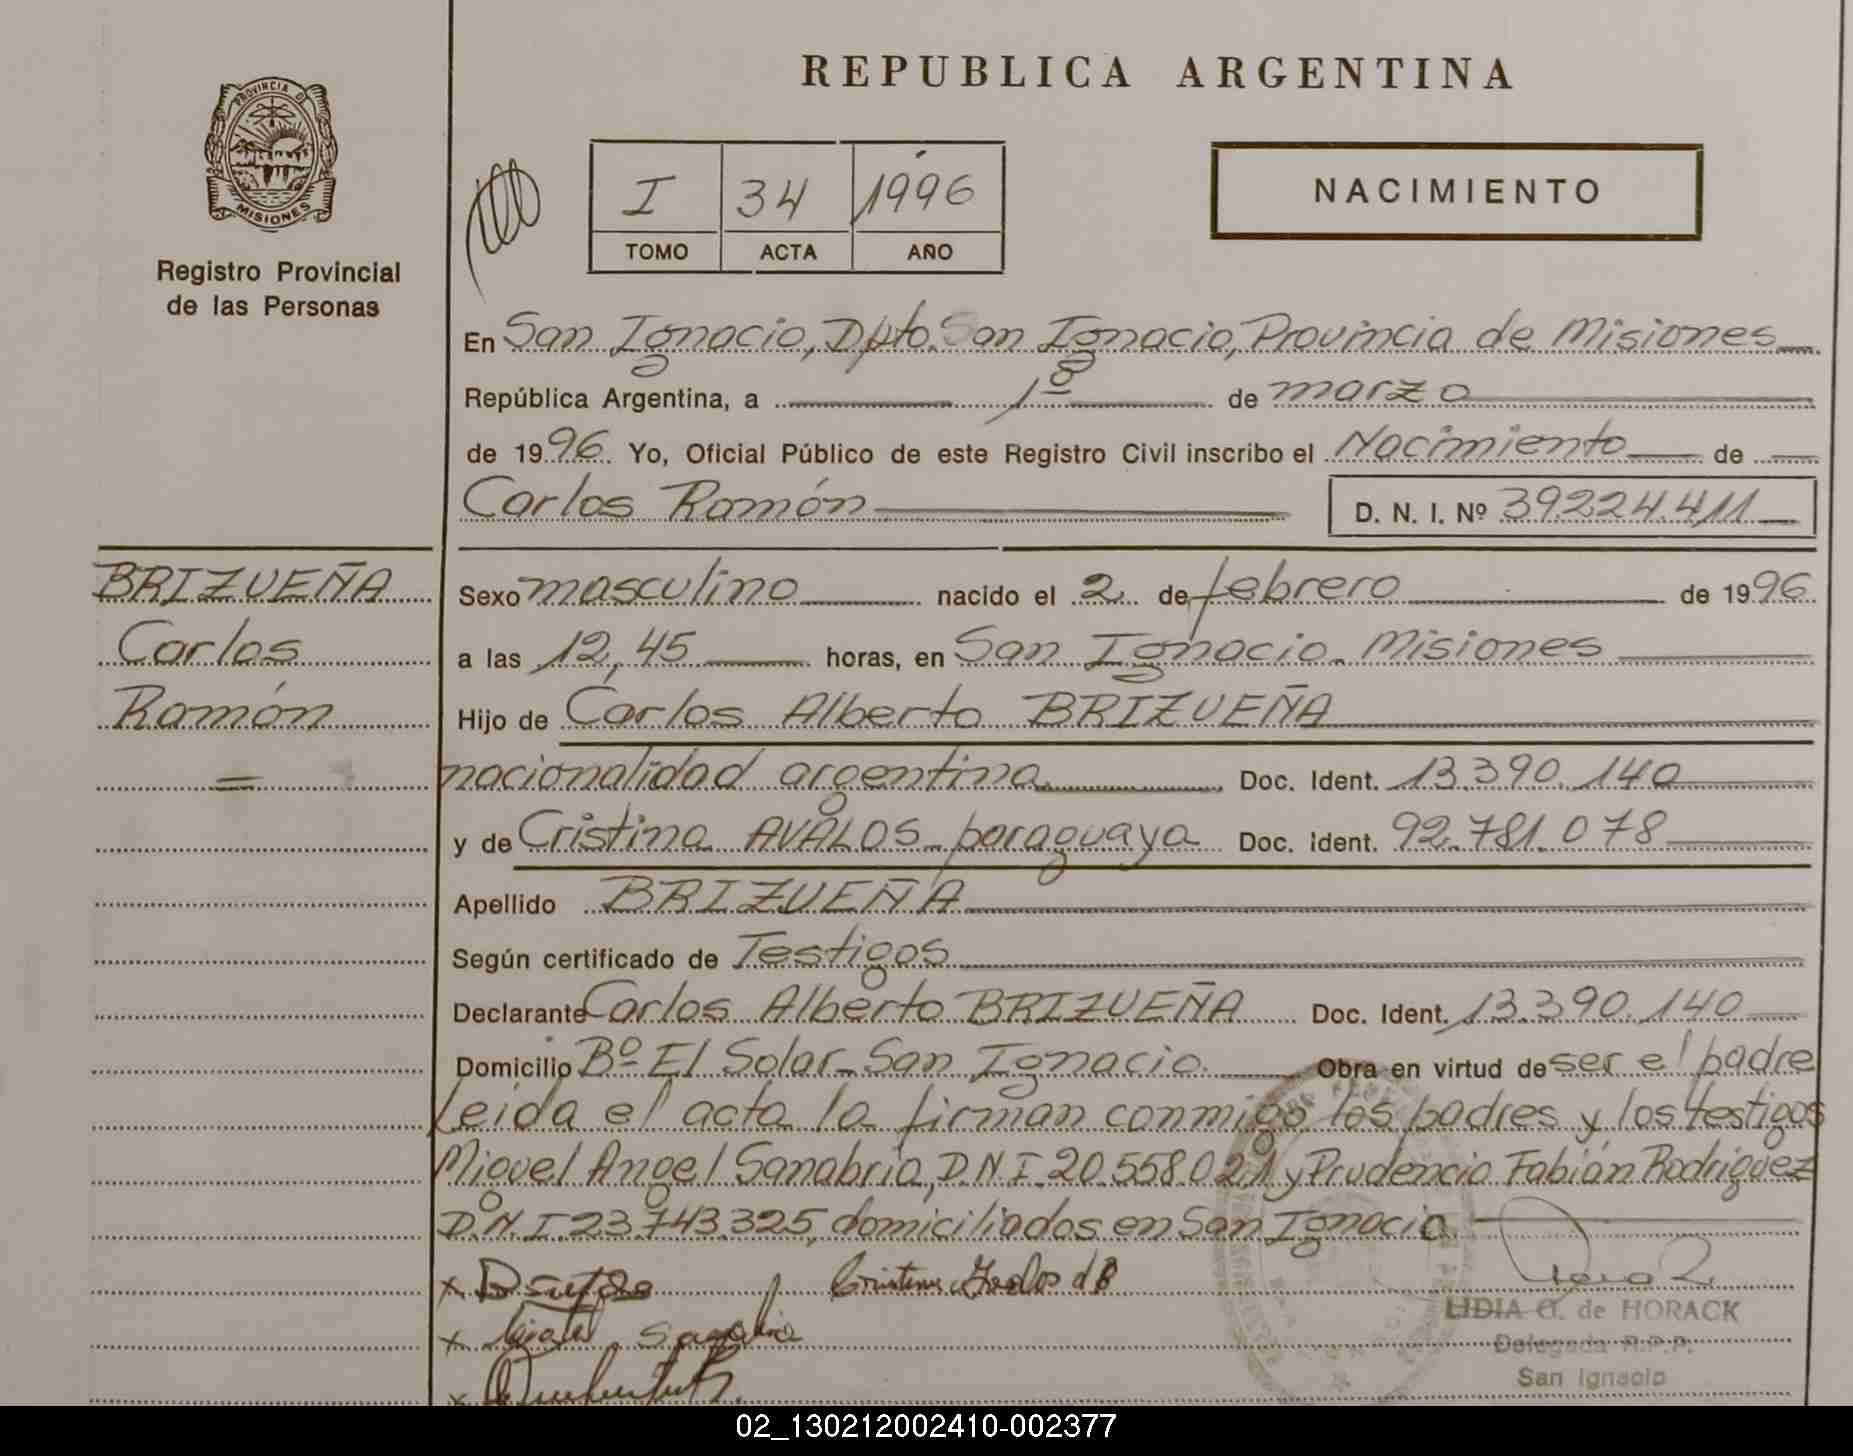 REPUBLICA ARGENTINA
PROVINCIA D
MISIONES
Registro Provincial
de las Personas
I 34 1996
TOMO ACTA AÑO
NACIMIENTO
En San Ignacio, Dpto. San Ignacio, Provincia de Misiones
República Argentina, a 1º de marzo
de 1996 Yo, Oficial Público de este Registro Civil inscribo el Nacimiento de
Carlos Ramón D. N. I. Nº 39.224.411
BRIZUEÑA
Carlos
Ramón
=
Sexo masculino nacido el 2 de febrero de 1996
a las 12,45 horas, en San Ignacio. Misiones
Hijo de Carlos Alberto BRIZUEÑA
nacionalidad argentina Doc. Ident. 13.390.140
y de Cristina AVALOS - paraguaya Doc. Ident. 92.781.078
Apellido BRIZUEÑA
Según certificado de Testigos
Declarante Carlos Alberto BRIZUEÑA Doc. Ident. 13.390.140
Domicilio Bº El Solar - San Ignacio. Obra en virtud de ser el padre
Leída el acta la firman conmigo los padres y los testigos
Miguel Angel Sanabria, D.N.I. 20.558.021 y Prudencio Fabián Rodriguez
D.N.I. 23.743.325, domiciliados en San Ignacio
LIDIA G. de HORACK
Delegada R.P.P.
San Ignacio
02_130212002410-002377